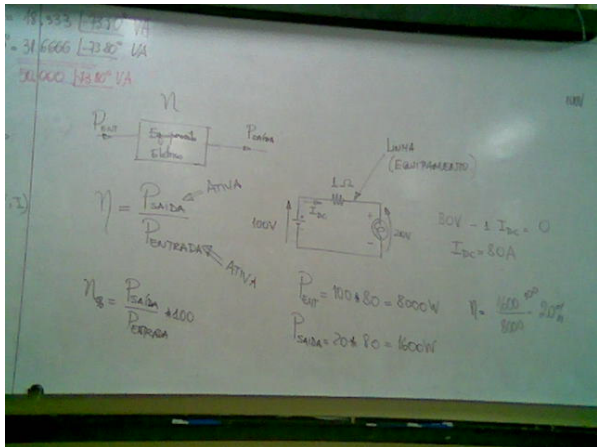 18.333 ∠-73.80° VA
= 31.6666 ∠-73.80° VA
50.000 ∠73.80° VA
η
P_ENT
Equipamento
Elétrico
P_SAÍDA
LINHA
(EQUIPAMENTO)
1 Ω
I_DC
100V
+
-
20V
η = P_SAIDA / P_ENTRADA
ATIVA
ATIVA
80V - 1 I_DC = 0
I_DC = 80A
η_% = P_SAÍDA / P_ENTRADA * 100
P_ENT = 100 * 80 = 8000W
P_SAIDA = 20 * 80 = 1600W
η = 1600 / 8000